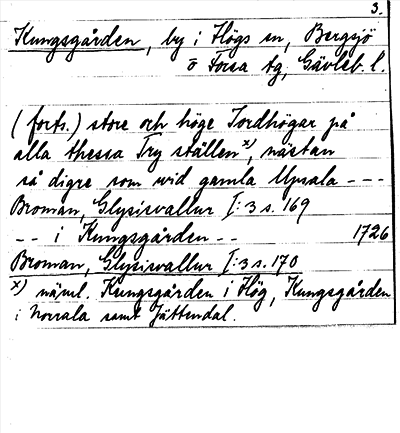 3.
Kungsgården, by i Högs sn, Bergsjö
o Forsa tg, Gävleb. l.
(forts.) store och höge Jordhögar på
alla thessa Try ställen x), nästan
så digre som wid gamla Upsala ---
Broman, Glysisvallur I:3 s. 169
-- i Kungsgården -- 1726
Broman, Glysisvallur I:3 s. 170
x) näml. Kungsgården i Hög, Kungsgården
i Norrala samt Jättendal.